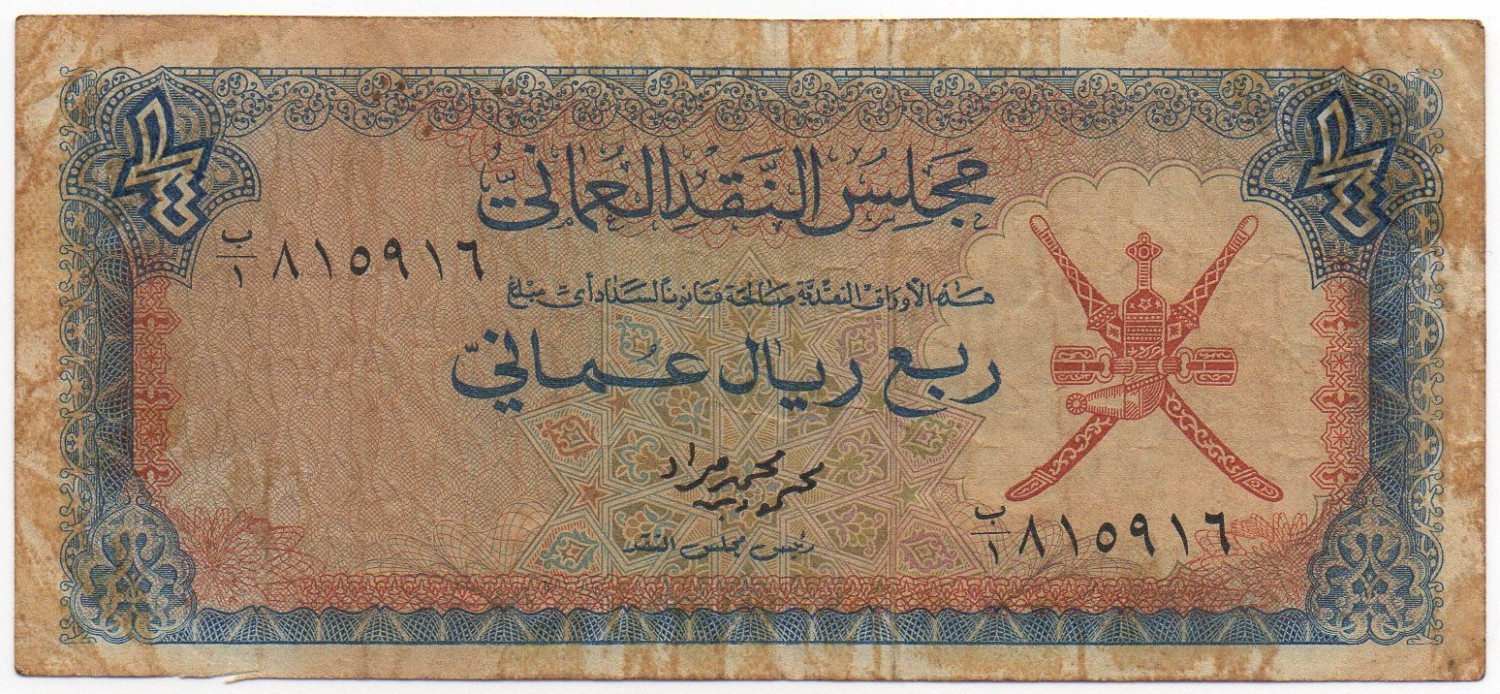 ١/٤ ١/٤
مجلس النقد العماني
ب/١ ٨١٥٩١٦
هذه الأوراق النقدية صالحة قانونا لسداد أي مبلغ
ربع ريال عماني
رئيس مجلس النقد
ب/١ ٨١٥٩١٦